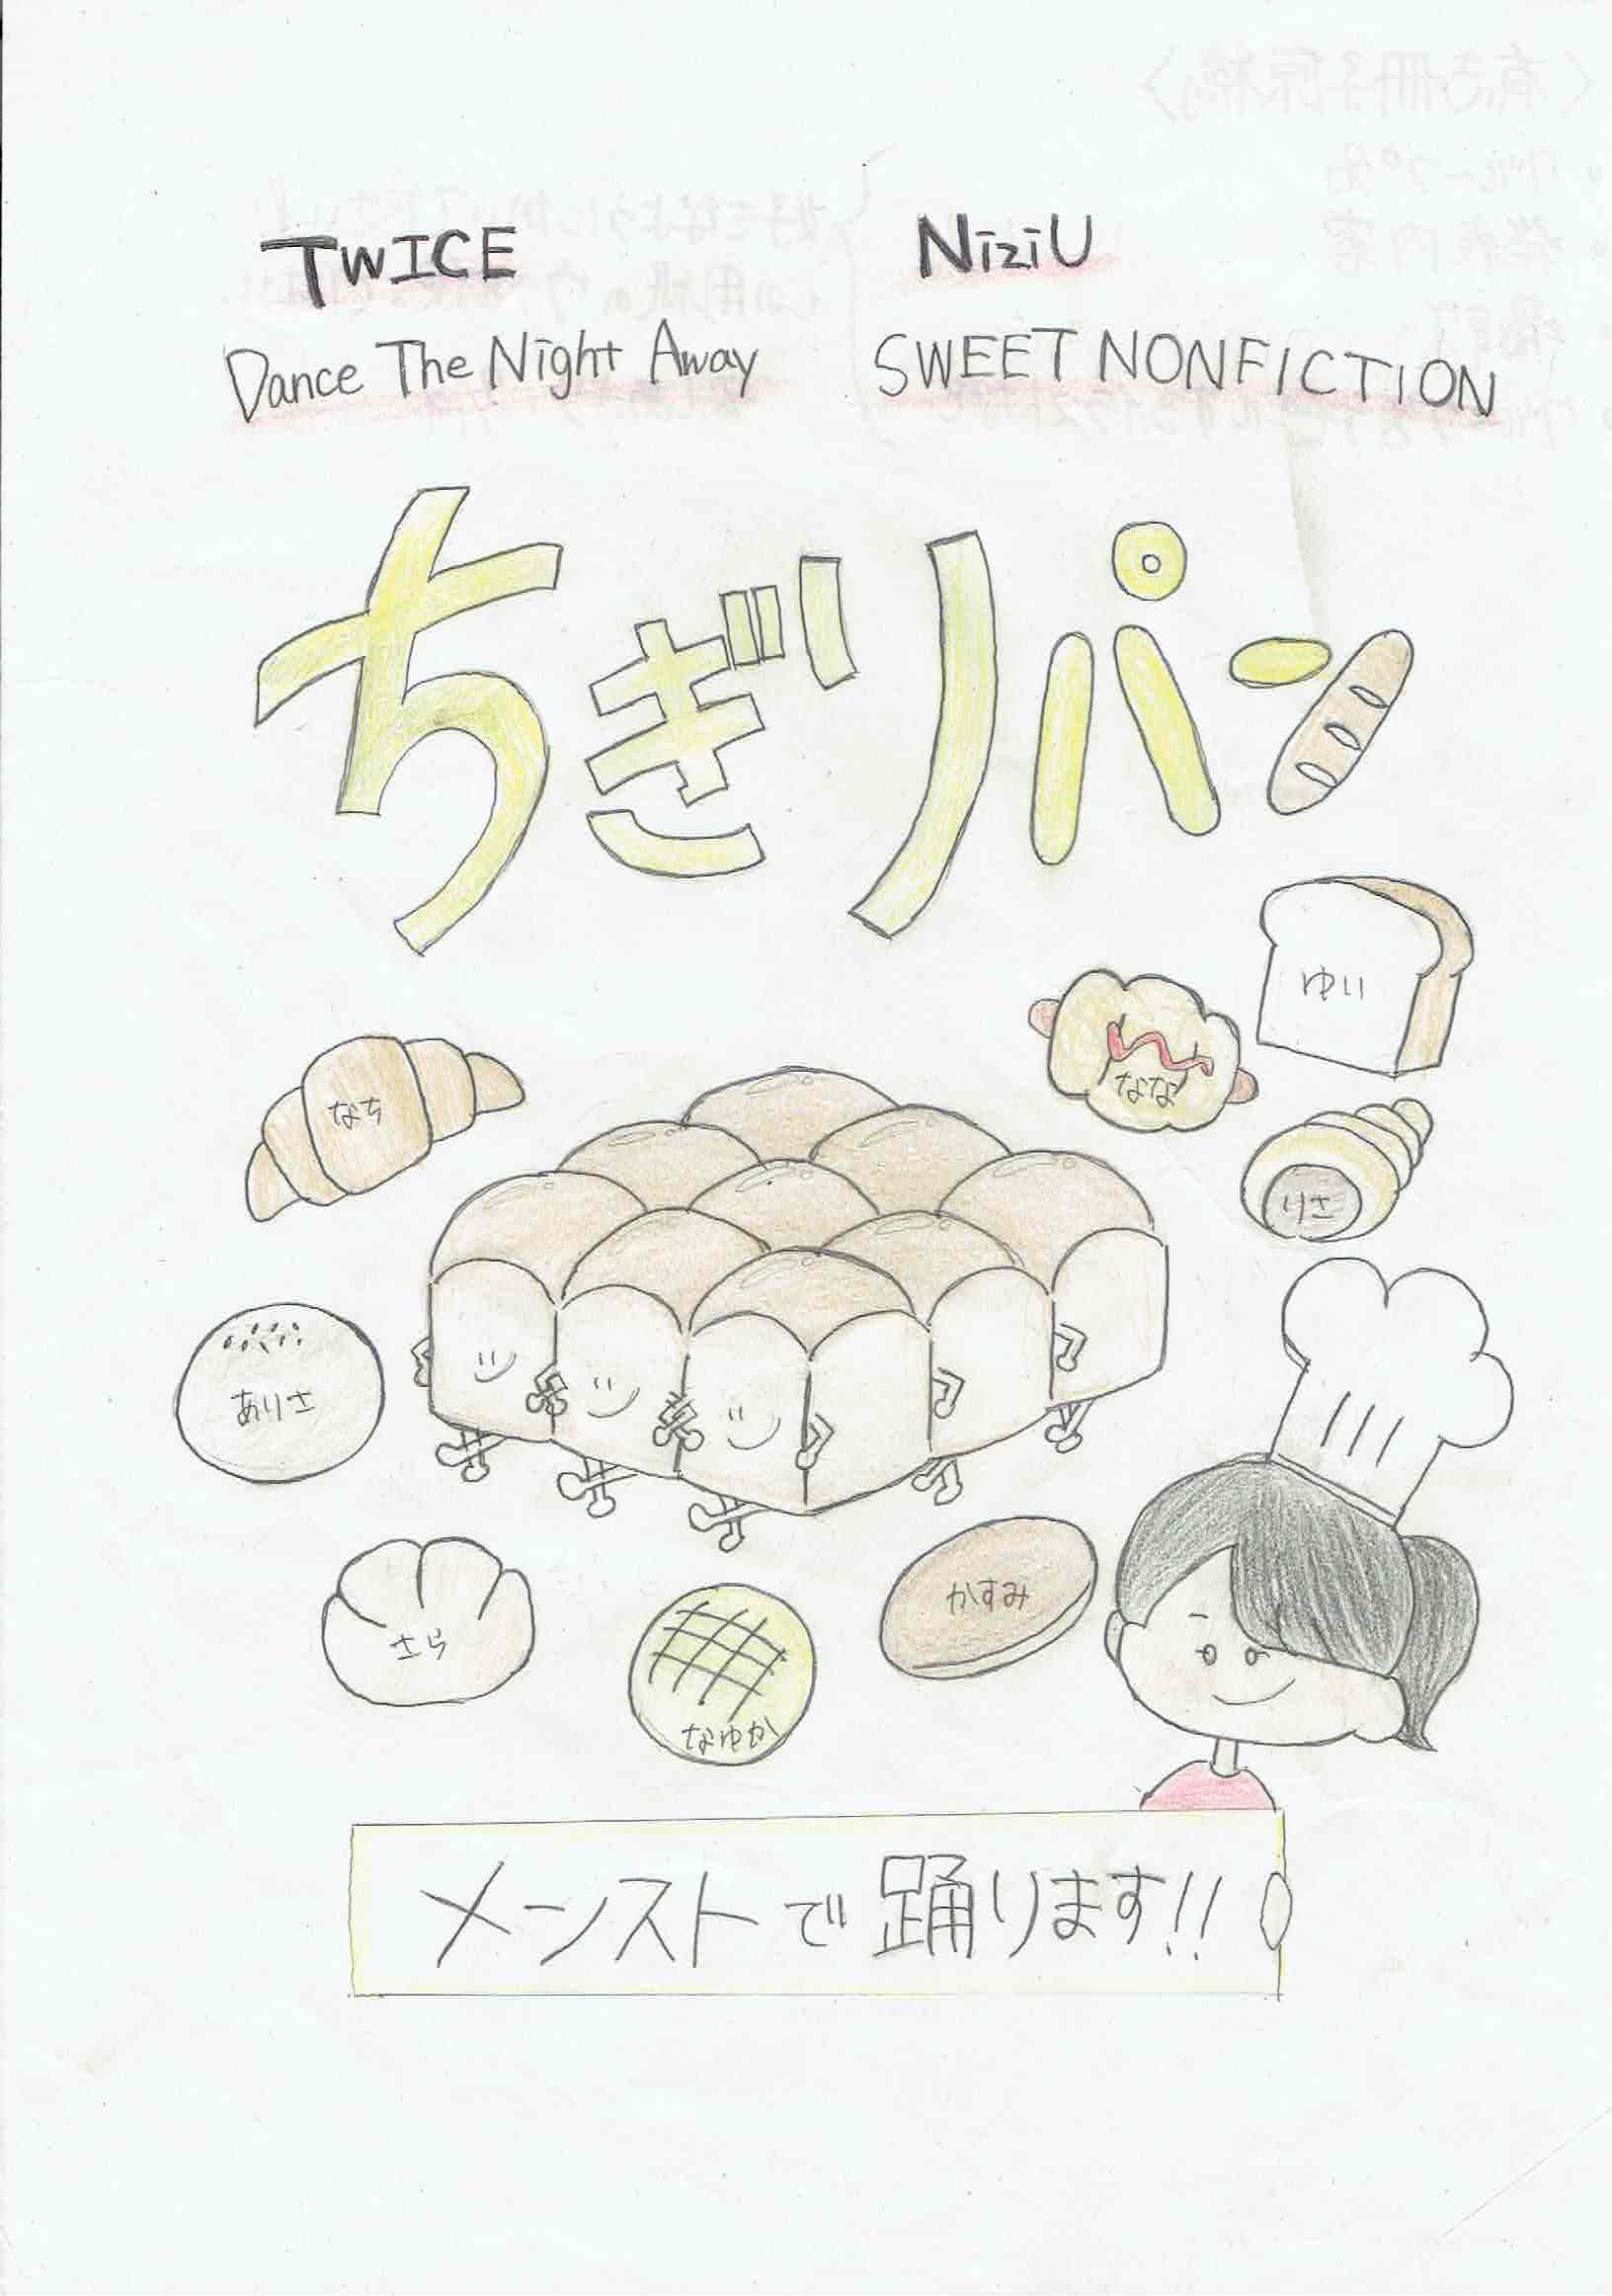 TWICE
Dance The Night Away
NiziU
SWEET NONFICTION
ちぎりパン
ゆい
なな
なち
りさ
ありさ
かすみ
さら
なゆか
メンストで踊ります!!